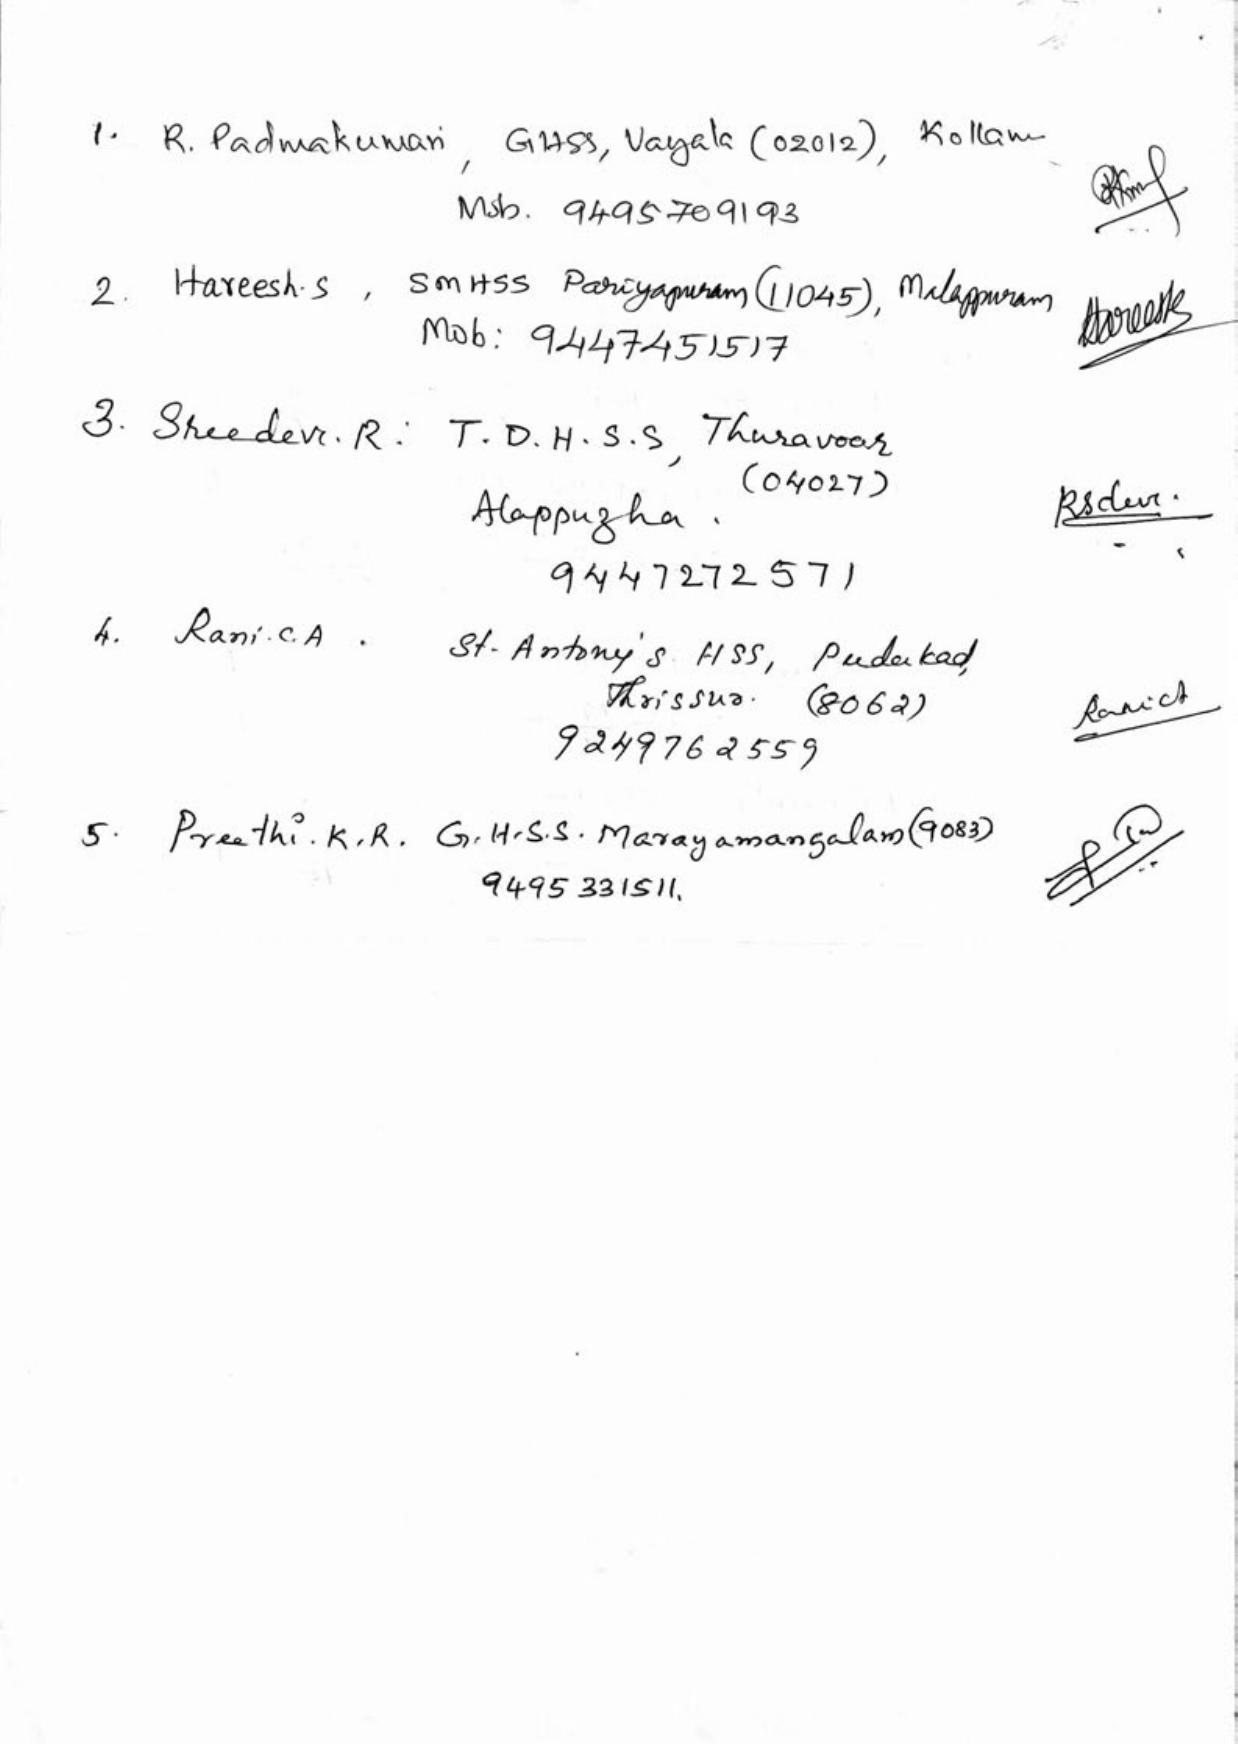 1. R. Padmakumari, GHSS, Vayala (02012), Kollam
Mob. 9495709193
2. Hareesh.S, SMHSS Pariyapuram (11045), Malappuram Hareesh
Mob: 9447451517
3. Sreedevi.R: T.D.H.S.S, Thuravoor
(04027)
Alappuzha. RSdevi.
9447272571
4. Rani.C.A. St. Antony's HSS, Pudukad,
Thrissur. (8062) Rani CA
9249762559
5. Preethi.K.R. G.H.S.S. Marayamangalam (9083)
9495331511.